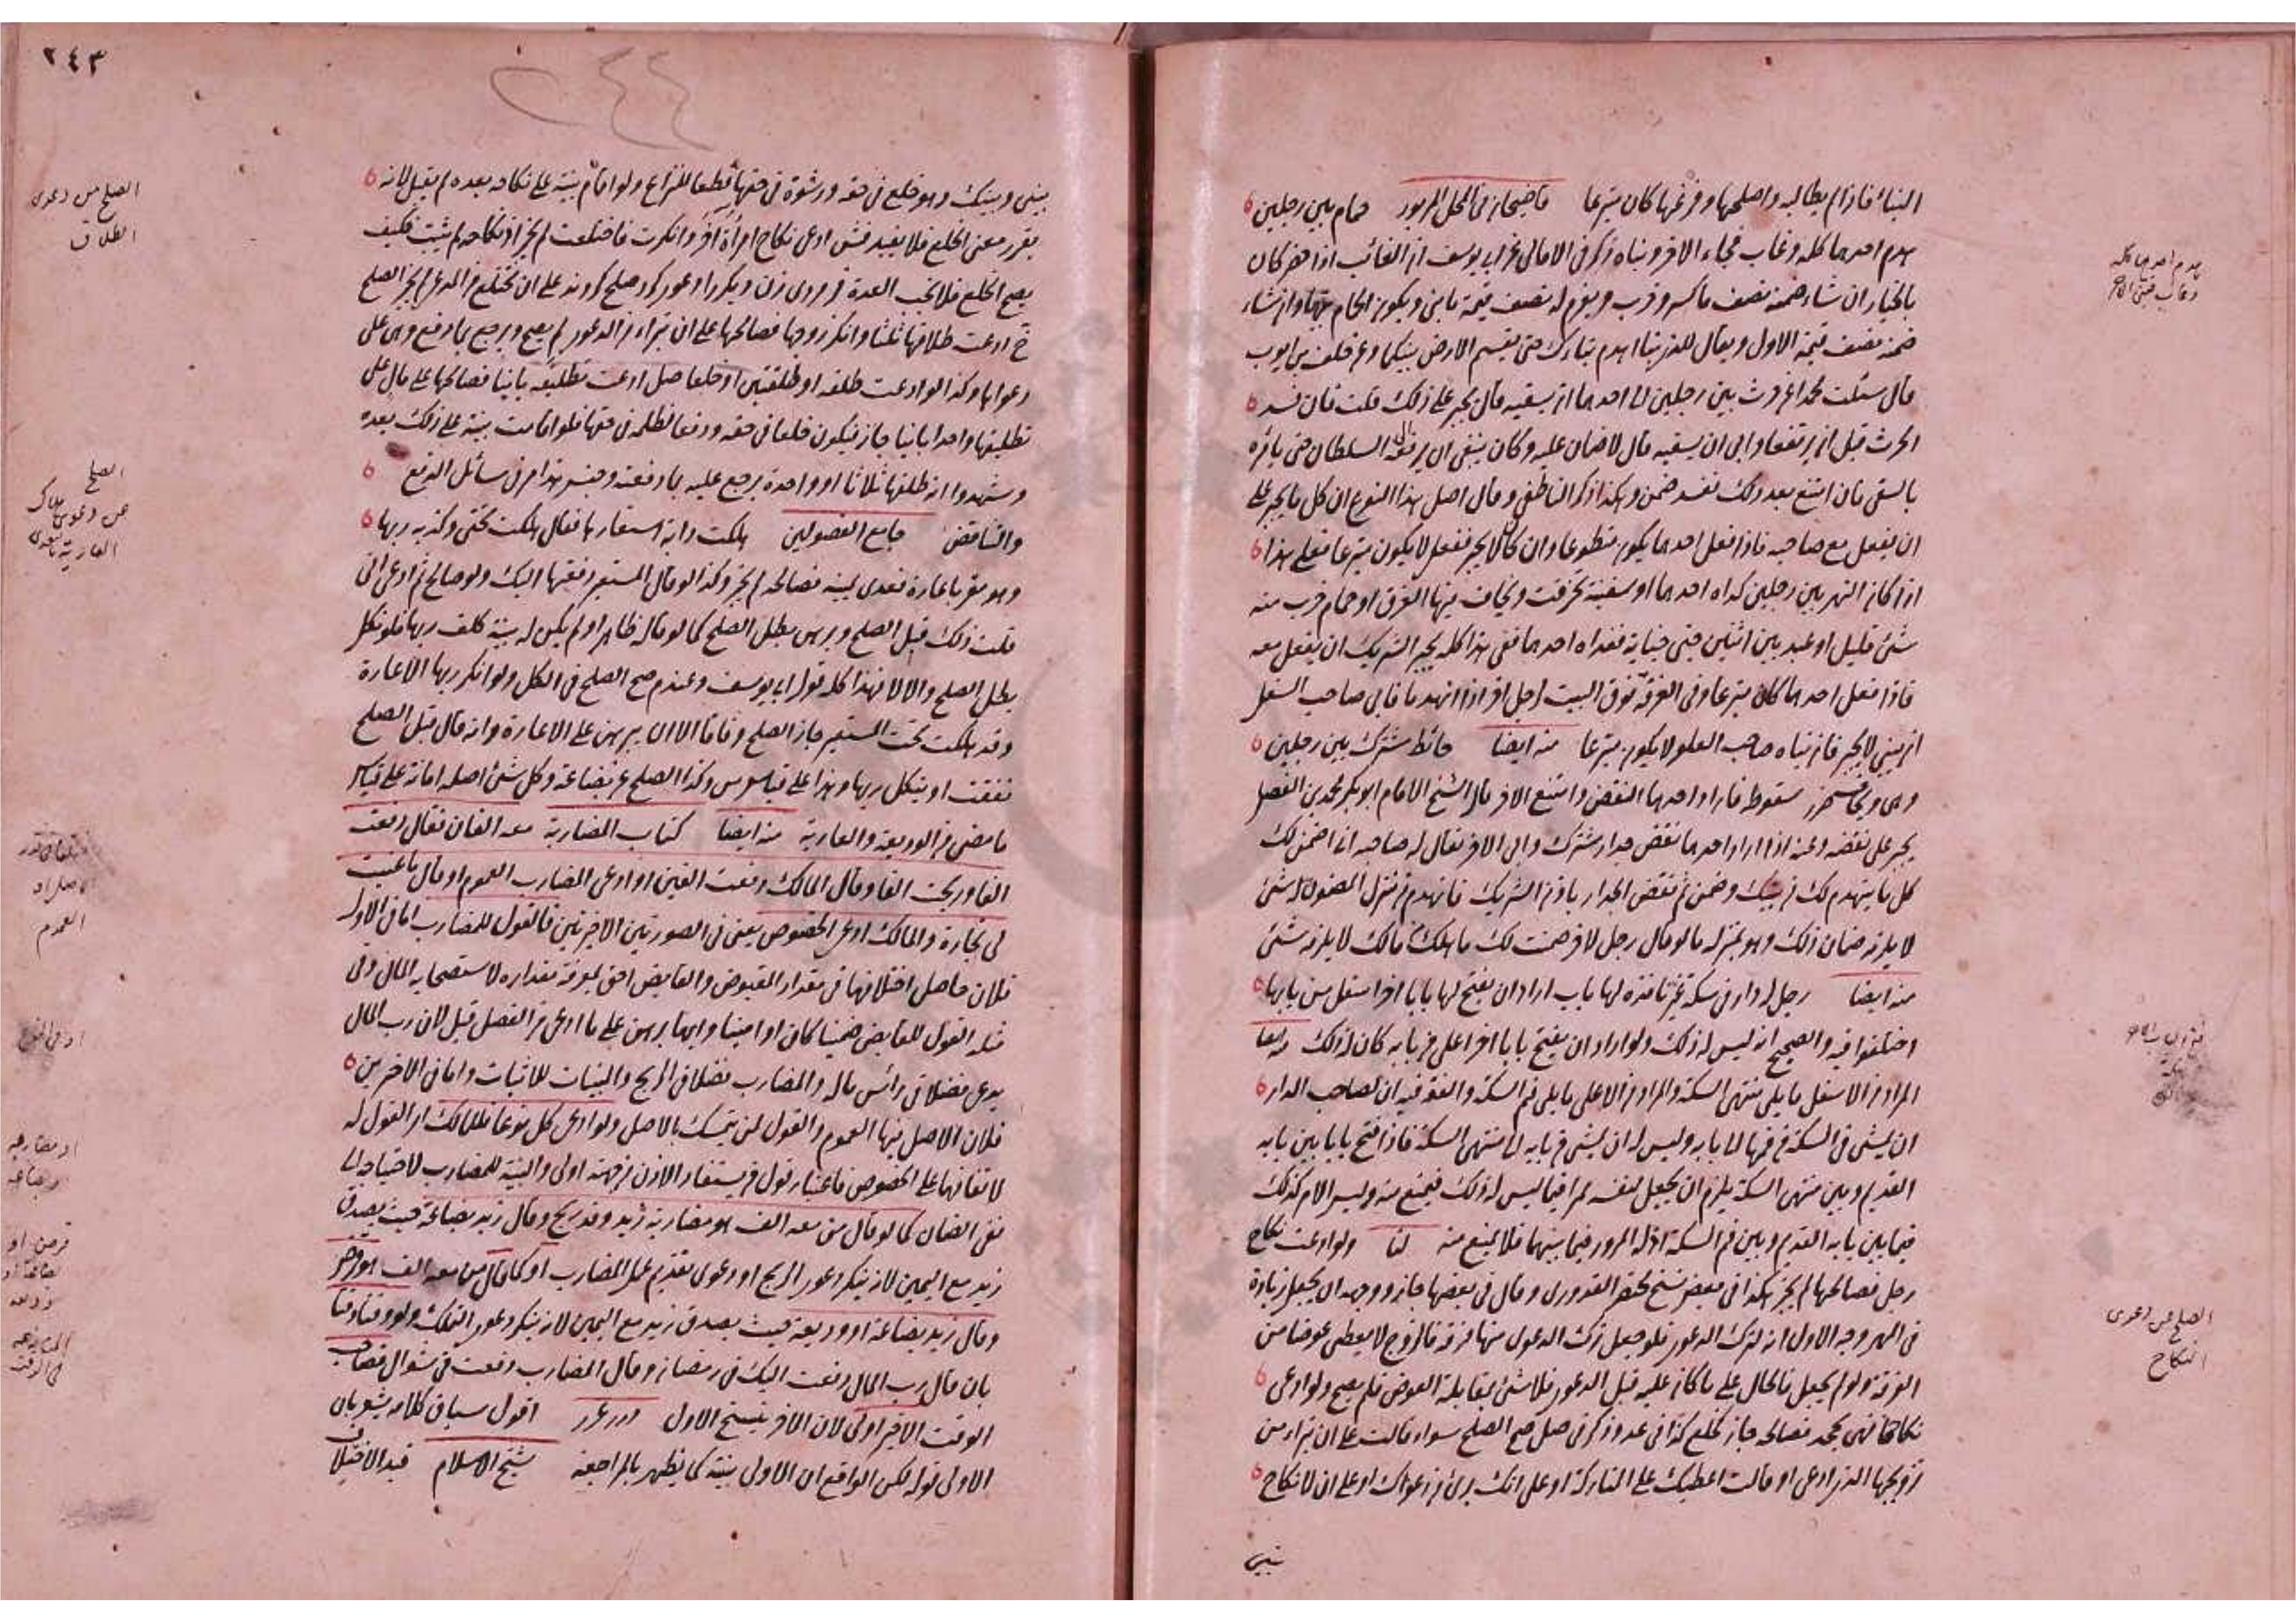 البناء فاذا لم يطالبه واصلحها وفرغها كان متبرعا قاضيخان في المحل المزبور حمام بين رجلين
هدم احدهما كله وغاب فجاء الآخر وبناه ذكر في الامالي عن ابي يوسف ان الغائب اذا حضر كان
بالخيار ان شاء ضمنه نصف ما كسر وخرب ويغرم له نصف قيمة ما بنى ويكون الحمام بينهما وان شاء
ضمنه نصف قيمة الاول ويقال للذي بنا اهدم بناءك حتى يقسم الارض بينكما وعن خلف بن ايوب
قال سئلت محمدا عن حرث بين رجلين ابى احدهما ان يسقيه قال يجبر على ذلك قلت فان فسد
الحرث قبل ان يرتفعا وابى ان يسقيه قال لا ضمان عليه وكان ينبغي ان يرفعه الى السلطان حتى يأمره
بالسقي فان امتنع بعد ذلك ففسد ضمن وهكذا ذكر الناطفي وقال اصل هذا النوع ان كل ما يجبر على
ان يفعل مع صاحبه فاذا فعل احدهما يكون متطوعا وان كان لا يجبر ففعل لا يكون متبرعا فعلى هذا
اذا كان النهر بين رجلين كراه احدهما او سفينة تخرقت ويخاف فيها الغرق او حمام خرب منه
شئ قليل او عبد بين اثنين جنى جناية ففداه احدهما ففي هذا كله يجبر الشريك ان يفعل معه
فاذا فعل احدهما كان متبرعا وفي الغرفة فوق البيت لرجل آخر اذا انهدما فابى صاحب السفل
ان يبني لا يجبر فان بناه صاحب العلو لا يكون متبرعا منه ايضا حائط مشترك بين رجلين
وهى ويخاف سقوطه فاراد احدهما النقض وامتنع الآخر قال الشيخ الامام ابو بكر محمد بن الفضل
يجبر على نقضه وعنه اذا اراد احدهما نقض جدار مشترك وابى الآخر فقال له صاحبه انا اضمن لك
كل ما ينهدم لك من بيتك وضمن ثم نقض الجدار باذن الشريك فانهدم من منزل المضمون له شئ
لا يلزمه ضمان ذلك وهو بمنزلة ما لو قال رجل لآخر ضمنت لك ما هلك من مالك لا يلزمه شئ
منه ايضا رجل له دار في سكة غير نافذة لها باب اراد ان يفتح لها بابا آخر اسفل من بابها
اختلفوا فيه والصحيح انه ليس له ذلك ولو اراد ان يفتح بابا آخر اعلى من بابه كان له ذلك منه ايضا
المراد من الاسفل ما يلي منتهى السكة والمراد من الاعلى ما يلي فم السكة والفقه فيه ان لصاحب الدار
ان يمشي في السكة من فمها الى بابه وليس له ان يمشي من بابه الى منتهى السكة فاذا فتح بابا بين بابه
القديم وبين منتهى السكة يلزم ان يجعل لنفسه ممرا فيما ليس له ذلك فيمنع منه وليس الامر كذلك
فيما بين بابه القديم وبين فم السكة اذ له المرور فيما بينهما فلا يمنع منه لنا ولو ادعت نكاح
رجل فصالحها لم يجز هكذا في بعض نسخ مختصر القدوري وقال في بعضها جاز ووجهه ان يجعل زيادة
في المهر وجه الاول انه لترك الدعوى فلو جعل ترك الدعوى منها فرقة فالزوج لا يعطي عوضا من
الفرقة ولو لم يجعل فالحال على ما كان عليه قبل الدعوى فلا شئ يقابله العوض فلم يصح ولو ادعى
نكاحها فهي تجحد فصالحه جاز كخلع كذا في عدة وذكر في صل صح الصلح سواء قالت على ان تبراء من
تزويجها الذي ادعى او قالت اعطيتك على المباركة او على انك برئ من دعواك او على ان لا نكاح
بيني
هدم احدهما كله
وغاب فبنى الآخر
الصلح عن دعوى
النكاح
٢٤٣
بيني وبينك وهو خلع في حقه ورشوة في حقها قطعا للنزاع ولو اقام بينة على نكاحه بعده لم يقبل لانه
يقرر معنى الخلع فلا يفيد فش ادعى نكاح امرأة آخر وانكرت فاختلعت لم يجز اذ نكاحه لم يثبت فكيف
يصح الخلع فلا تجب العدة مردى زن ديكر را دعوى كرد صلح كردند على ان تختلع من المدعي لم يجز الصلح
خ ادعت طلاقها ثلثا وانكر زوجها فصالحها على ان تبراء من الدعوى لم يصح ويرجع بما دفع وهى على
دعواها وكذا لو ادعت طلقة او طلقتين او خلعا صل ادعت تطليقة باينا فصالحها على مال على
تطليقها واحدا باينا جاز فيكون خلعا في حقه ودفعا لظلمه في حقها فلو اقامت بينة على ذلك بعده
وشهدوا انه طلقها ثلاثا او واحدة يرجع عليه بما دفعته وجنس هذا مر في مسائل الدفع
والتناقض جامع الفصولين هلكت دابة استعارها فقال هلكت تحتي وكذبه ربها
وهو مقر باعارة فعدى بينة فصالحه لم يجز وكذا لو قال المستعير دفعتها اليك ولو صالح ثم ادعى اني
قلت ذلك قبل الصلح وبرهن بطل الصلح كما لو قاله ظاهرا ولو لم يكن له بينة حلف ربها فلو نكل
بطل الصلح والا لا فهذا كله قول ابي يوسف وعند م صح الصلح في الكل ولو انكر ربها الاعارة
وقد هلكت تحت المستعير جاز الصلح وفاقا الا ان يبرهن على الاعارة وانه قال قبل الصلح
نفقت او ينكل ربها وهذا على قياس س وكذا الصلح عن بضاعة وكل شئ اصله امانة على قياس
ما مضى من الوديعة والعارية منه ايضا كتاب المضاربة معه الفان فقال دفعت
الفا وربحت الفا وقال المالك دفعت الفين او ادعى المضارب العموم او قال ما عينت
لي تجارة والمالك ادعى الخصوص يعني في الصورتين الاخيرتين فالقول للمضارب اما في الاول
فلان حاصل اختلافهما في مقدار المقبوض والقابض احق بمعرفة مقداره لاستصحابه المال وفي
مثله القول للقابض ضمينا كان او امينا وايهما برهن على ما ادعى من الفضل قبل لان رب المال
يدعي فضلا في رأس ماله والمضارب فضلا في الربح والبينات للاثبات واما في الاخيرين
فلان الاصل فيها العموم والقول لمن يتمسك بالاصل ولو ادعى كل نوعا فللمالك اي القول له
لاتفاقهما على الخصوص فاعتبار قول من يستفاد الاذن من جهته اولى والبينة للمضارب لاحتياجه الى
نفي الضمان كما لو قال من معه الف هو مضاربة زيد وقد ربح وقال زيد بضاعة حيث يصدق
زيد مع اليمين لانه ينكر دعوى الربح او دعوى تقديم عمل المضارب او كما قال من معه الف هو قرض
وقال زيد بضاعة او وديعة حيث يصدق زيد مع اليمين لانه ينكر دعوى التملك ولو وقتا وقتا
بان قال رب المال دفعت اليك في رمضان وقال المضارب دفعت في شوال فصاحب
الوقت الاخير اولى لان الآخر ينسخ الاول درر غرر اقول سياق كلامه يشعر بان
الاولى قوله لكن الواقع ان الاولى بينة كما يظهر بالمراجعة شيخ الاسلام قيد الاختلاف
الصلح من دعوى
الطلاق
الصلح
عن دعوى هلاك
العارية
العموم